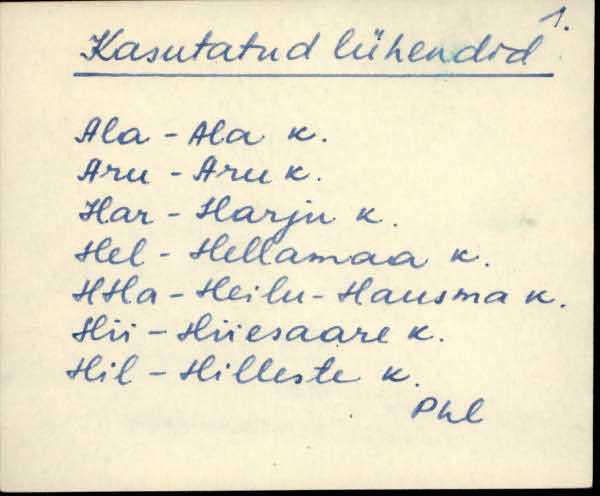 1.
Kasutatud lühendid
Ala - Ala k.
Aru - Aru k.
Har - Harju k.
Hel - Hellamaa k.
HHa - Heilu-Hausma k.
Hii - Hiiesaare k.
Hil - Hilleste k.
Phl